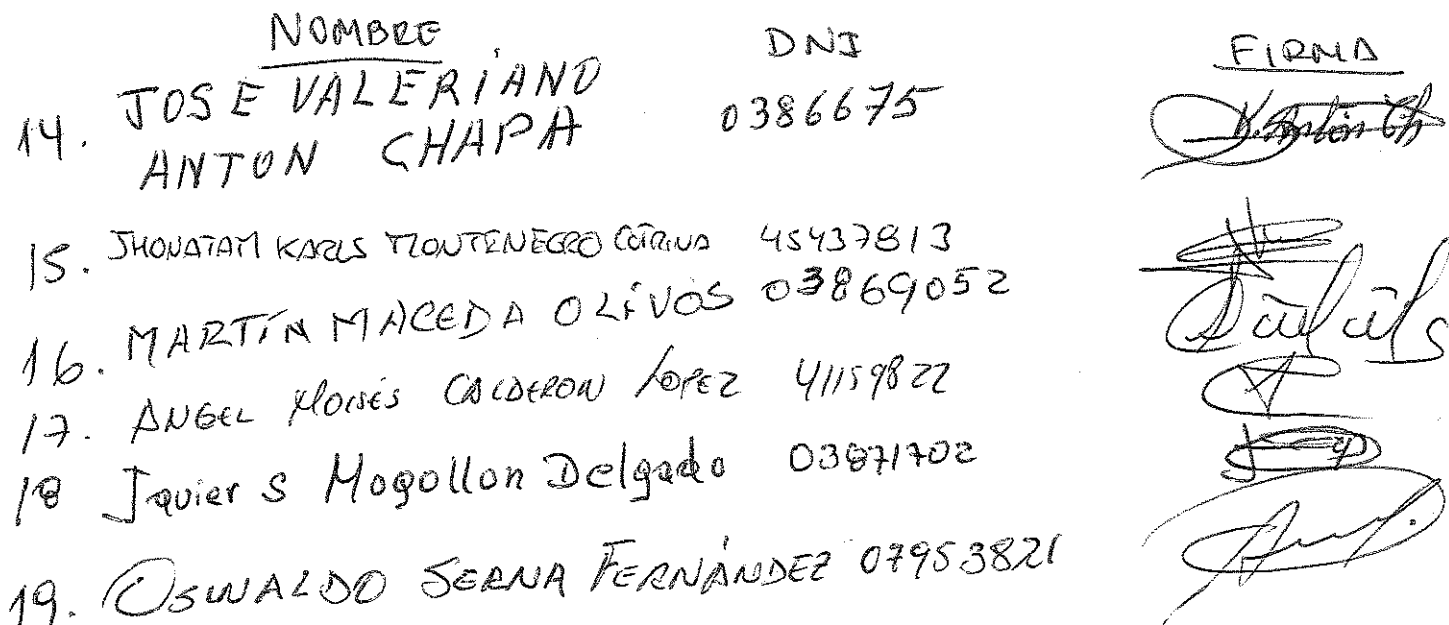 NOMBRE DNI FIRMA
14. JOSE VALERIANO 0386675
ANTON CHAPA
15. JHONATAM KARLS MONTENEGRO 45437813
16. MARTÍN MACEDA OLIVOS 03869052
17. ANGEL MOISÉS CALDERON LOPEZ 41159822
18 Javier S Mogollon Delgado 03871702
19. OSWALDO SERNA FERNÁNDEZ 07953821